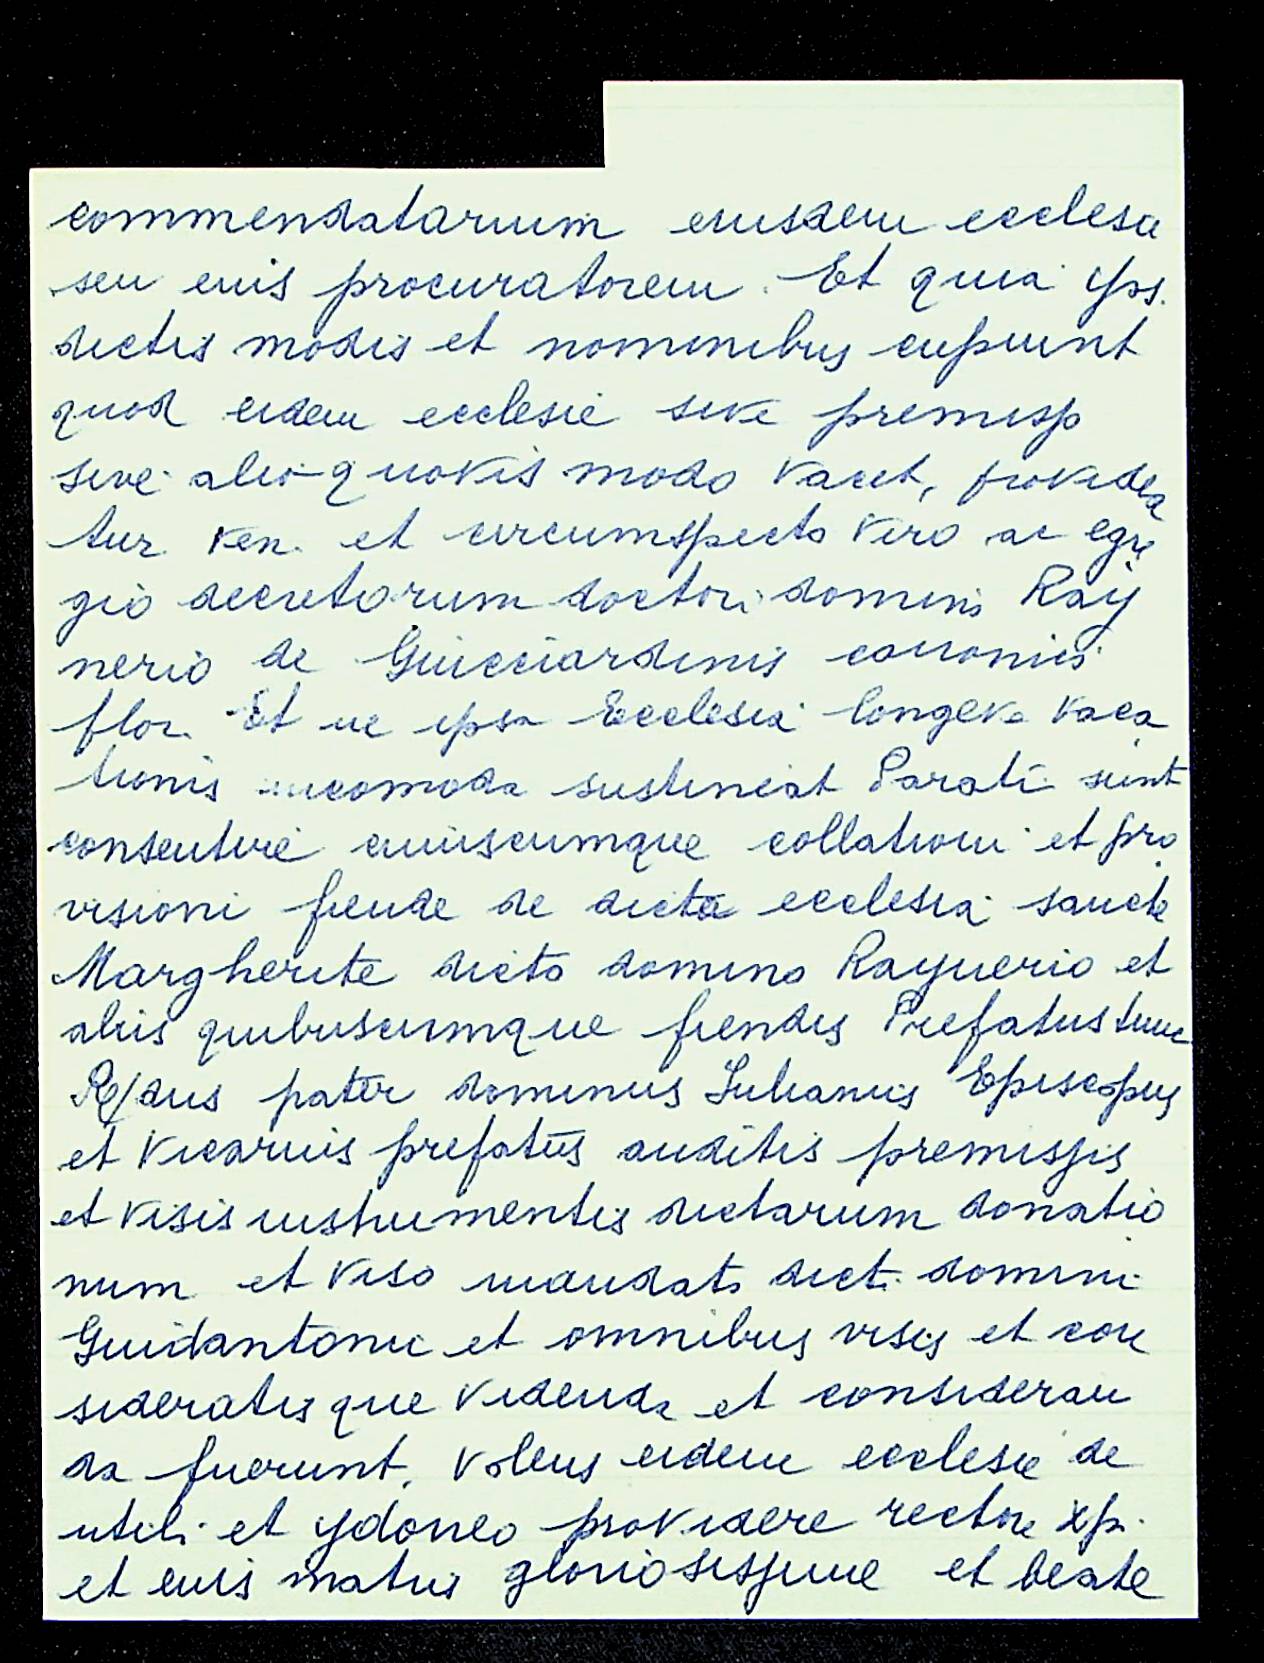 commendatarium eiusdem ecclesie
seu eius procuratorem. Et quia ips.
dictis modis et nominibus cupiunt
quod eidem ecclesie sive premisso
sive alio quovis modo vacet, providea
tur ven. et circumspecto viro ac egre
gio decretorum doctori domino Ray
nerio de Guicciardinis canonico
flor. Et ne ipsa Ecclesia longeva vaca
tionis incomoda sustineat Parati sunt
consentire cuiuscumque collationi et pro
visioni fiende de dicta ecclesia sancte
Margherite dicto domino Raynerio et
aliis quibuscumque fiendis Prefatus tunc
R/dus pater dominus Iulianus Episcopus
et Vicarius prefatus auditis premissis
et visis instrumentis dictarum donatio
num et viso mandato dicti domini
Guidantonii et omnibus visis et con
sideratis que videnda et consideran
da fuerunt, volens eidem ecclesie de
utili et ydoneo providere rectore xpi.
et eius matris gloriosissime et beate